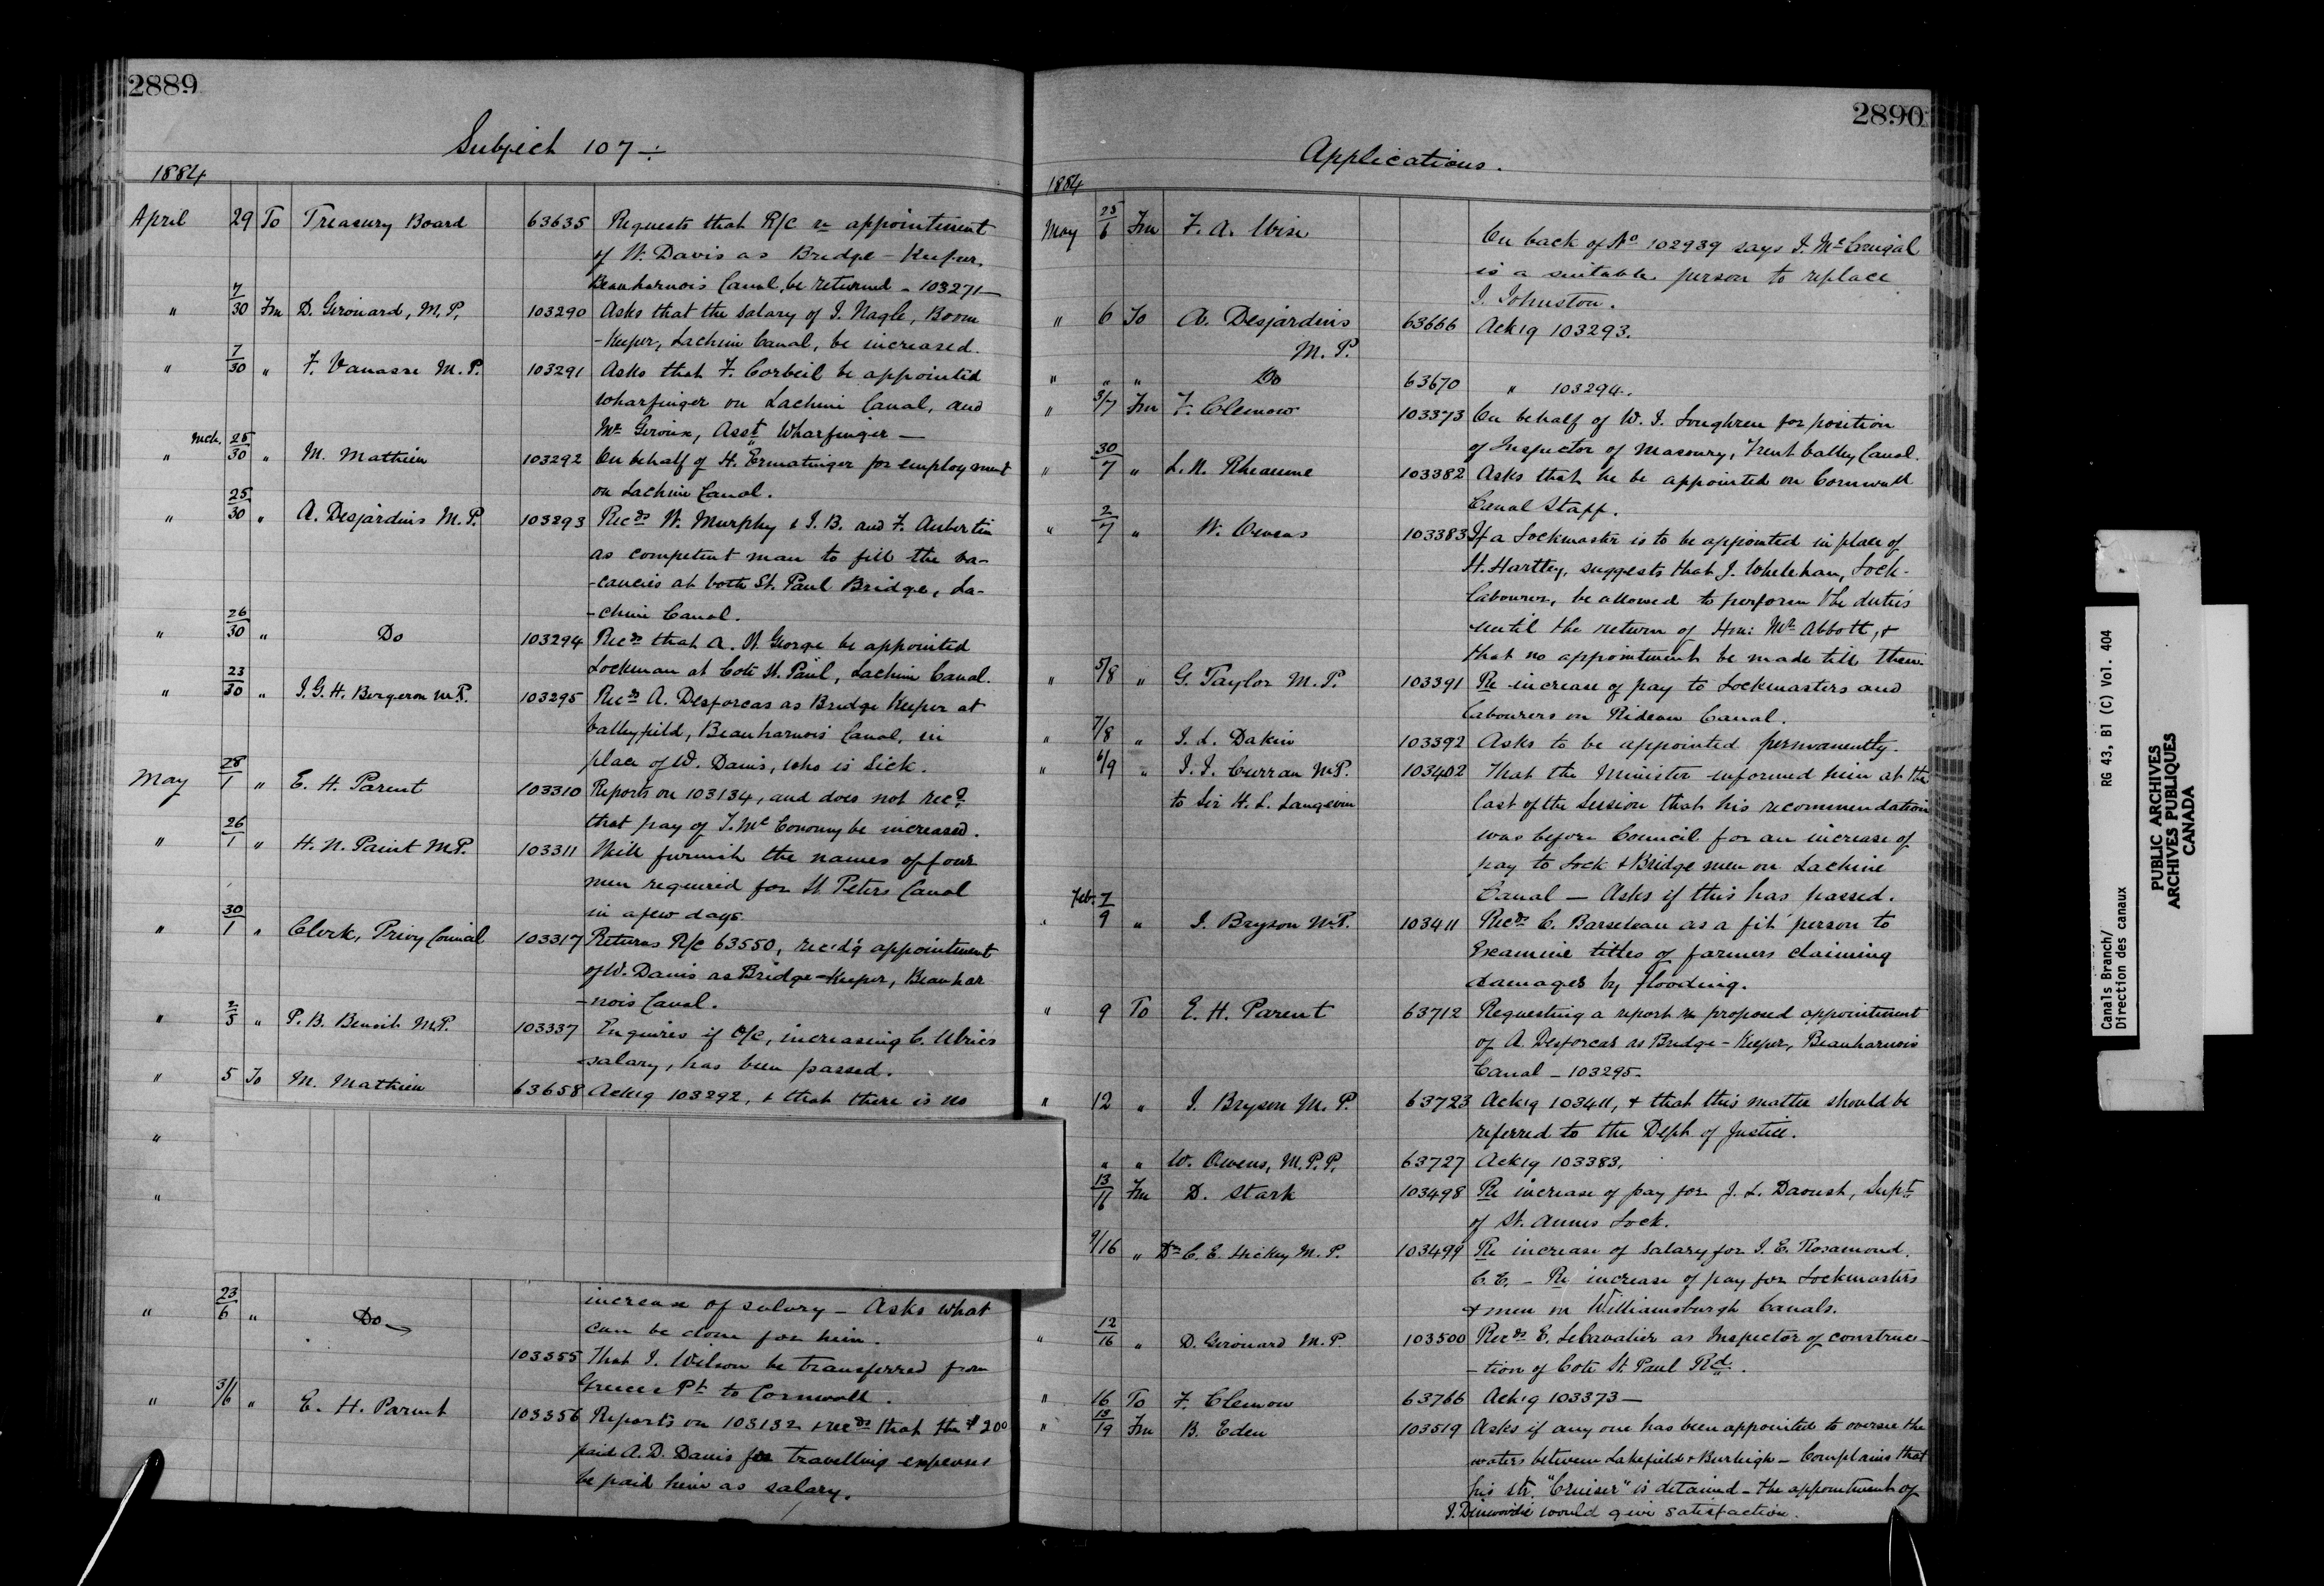 2889
Subject 107 ÷
1884
April 29 To Treasury Board 63635 Requests that R/C re appointment
of W. Davis as Bridge-Keeper,
Beauharnois Canal, be returned - 103271 —
" 7/30 Fm D. Girouard, M.P. 103290 Asks that the salary of J. Nagle, Boom
-Keeper, Lachine Canal, be increased.
" 7/30 " F. Vanasse M.P. 103291 Asks that F. Corbeil be appointed
Wharfinger on Lachine Canal, and
Mr Giroux, Asst Wharfinger —
" Mch. 25/30 " M. Mathieu 103292 On behalf of H. Ermatinger for employment
on Lachine Canal.
" 25/30 " A. Desjardins M.P. 103293 Recds W. Murphy & J. B. and F. Aubertin
as competent man to fill the va-
-cancies at both St. Paul Bridge, La-
-chine Canal.
" 26/30 " Do 103294 Recds that A. N. George be appointed
Lockman at Cote St. Paul, Lachine Canal.
" 23/30 " J. G. H. Bergeron M.P. 103295 Recds A. Desforcas as Bridge Keeper at
Valleyfield, Beauharnois Canal, in
place of W. Davis, who is sick.
May 28/1 " E. H. Parent 103310 Reports on 103134, and does not recd
that pay of T. McConomy be increased.
" 26/1 " H. N. Paint M.P. 103311 Will furnish the names of four
men required for St Peters Canal
in a few days.
" 30/1 " Clerk, Privy Council 103317 Returns R/C 63550, rec'd'g appointment
of W. Davis as Bridge-Keeper, Beauhar
-nois Canal.
" 2/5 " P. B. Benoit M.P. 103337 Enquires if O/C, increasing C.
salary, has been passed.
" 5 To M. Mathieu 63658 Ack'g 103292, & that there is no
"
"
increase of salary — Asks what
" 23/6 " Do can be done for him.
103355 That J. Wilson be transferred from
Greece's Pt to Cornwall.
" 3/6 " E. H. Parent 103356 Reports on 103132 & recds that the $200
paid A. D. Davis for travelling expenses
be paid him as salary.
2890
Applications.
1884
May 25/6 Fm F. A. Wise On back of No 102939 says J.
is a suitable person to replace
J. Johnston.
" 6 To A. Desjardins 63666 Ack'g 103293.
M.P.
" " " Do 63670 " 103294.
" 3/7 Fm F. Clemow 103373 On behalf of W. J. Loughren for position
of Inspector of Masonry, Trent Valley Canal.
" 30/7 " L. N. Rheaume 103382 Asks that he be appointed on Cornwall
Canal Staff.
" 2/7 " W. Owens 103383 If a Lockmaster is to be appointed in place of
H. Hartley, suggests that J. Whelehan, Lock-
labourer, be allowed to perform the duties
until the return of Hon: Mr Abbott, &
that no appointment be made till then.
" 5/8 " G. Taylor M.P. 103391 Re increase of pay to Lockmasters and
labourers on Rideau Canal.
" 7/8 " J. L. Dakin 103392 Asks to be appointed permanently.
" 6/9 " J. J. Curran M.P. 103402 That the Minister informed him at the
to Sir H. L. Langevin last of the Session that his recommendation
was before Council for an increase of
pay to Lock & Bridge men on Lachine
Canal — Asks if this has passed.
" Feb. 7/9 " J. Bryson M.P. 103411 Recds C. Barseleau as a fit person to
Examine titles of farmers claiming
damages by flooding.
" 9 To E. H. Parent 63712 Requesting a report re proposed appointment
of A. Desforcas as Bridge-Keeper, Beauharnois
Canal — 103295 -
" 12 " J. Bryson M.P. 63723 Ack'g 103411, & that this matter should be
referred to the Dept of Justice.
" " W. Owens, M.P.P. 63727 Ack'g 103383.
13/16 Fm D. Stark 103498 Re increase of pay for J. L. Daoust, Supt
of St. Annes Lock.
9/16 " Dr C. E. Hickey M.P. 103499 Re increase of salary for J. E. Rosamond,
C. E. — Re increase of pay for Lockmasters
& men on Williamsburgh Canals.
" 12/16 " D. Girouard M.P. 103500 Recds E. Lecavalier as Inspector of construc-
-tion of Cote St. Paul Rd.
" 16 To F. Clemow 63766 Ack'g 103373 —
" 13/19 Fm B. Eden 103519 Asks if any one has been appointed to oversee the
waters between Lakefield & Burleigh — Complains that
his str. "Cruiser" is detained — the appointment of
J. Dinwoodie would give satisfaction.
Canals Branch/ RG 43, B1 (C) Vol. 404
Direction des canaux
PUBLIC ARCHIVES
ARCHIVES PUBLIQUES
CANADA